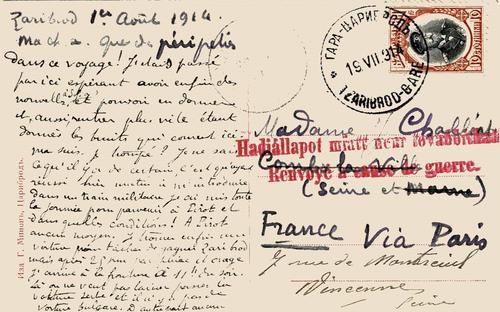 Zaribrod 1er Août 1914.
Ma ch. a. Que de péripéties
dans ce voyage! Je l'ai passé
par ici espérant avoir enfin des
nouvelles, et pouvoir en donner
et aussi rentrer plus vite étant
donnés les bruits qui courent ici
me suis-je trompé? Je ne sais
ce qu'il y a de certain c'est qu'ayant
réussi hier matin à m'introduire
dans un train militaire j'ai mis toute
la journée pour parvenir à Pirot et
dans quelles conditions! A Pirot
aucun moyen. Je trouve enfin une
voiture pour tâcher de gagner Zaribrod
mais après 25 km
j'arrive à la frontière il 11h du soir.
là on ne veut pas laisser passer la
voiture serbe et il n'y a pas de
voiture bulgare. D'autre aucun
Изд. Г. Миновъ, Царибродъ.
ГАРА-ЦАРИБРОДЪ
19.VII.914
TZARIBROD-GARE
10
Madame
Hadiállapot miatt nem továbbítható
Combs la Ville
Renvoyé à cause de guerre.
(Seine et Marne)
France Via Paris
7 rue de Montreuil
Vincennes
Seine